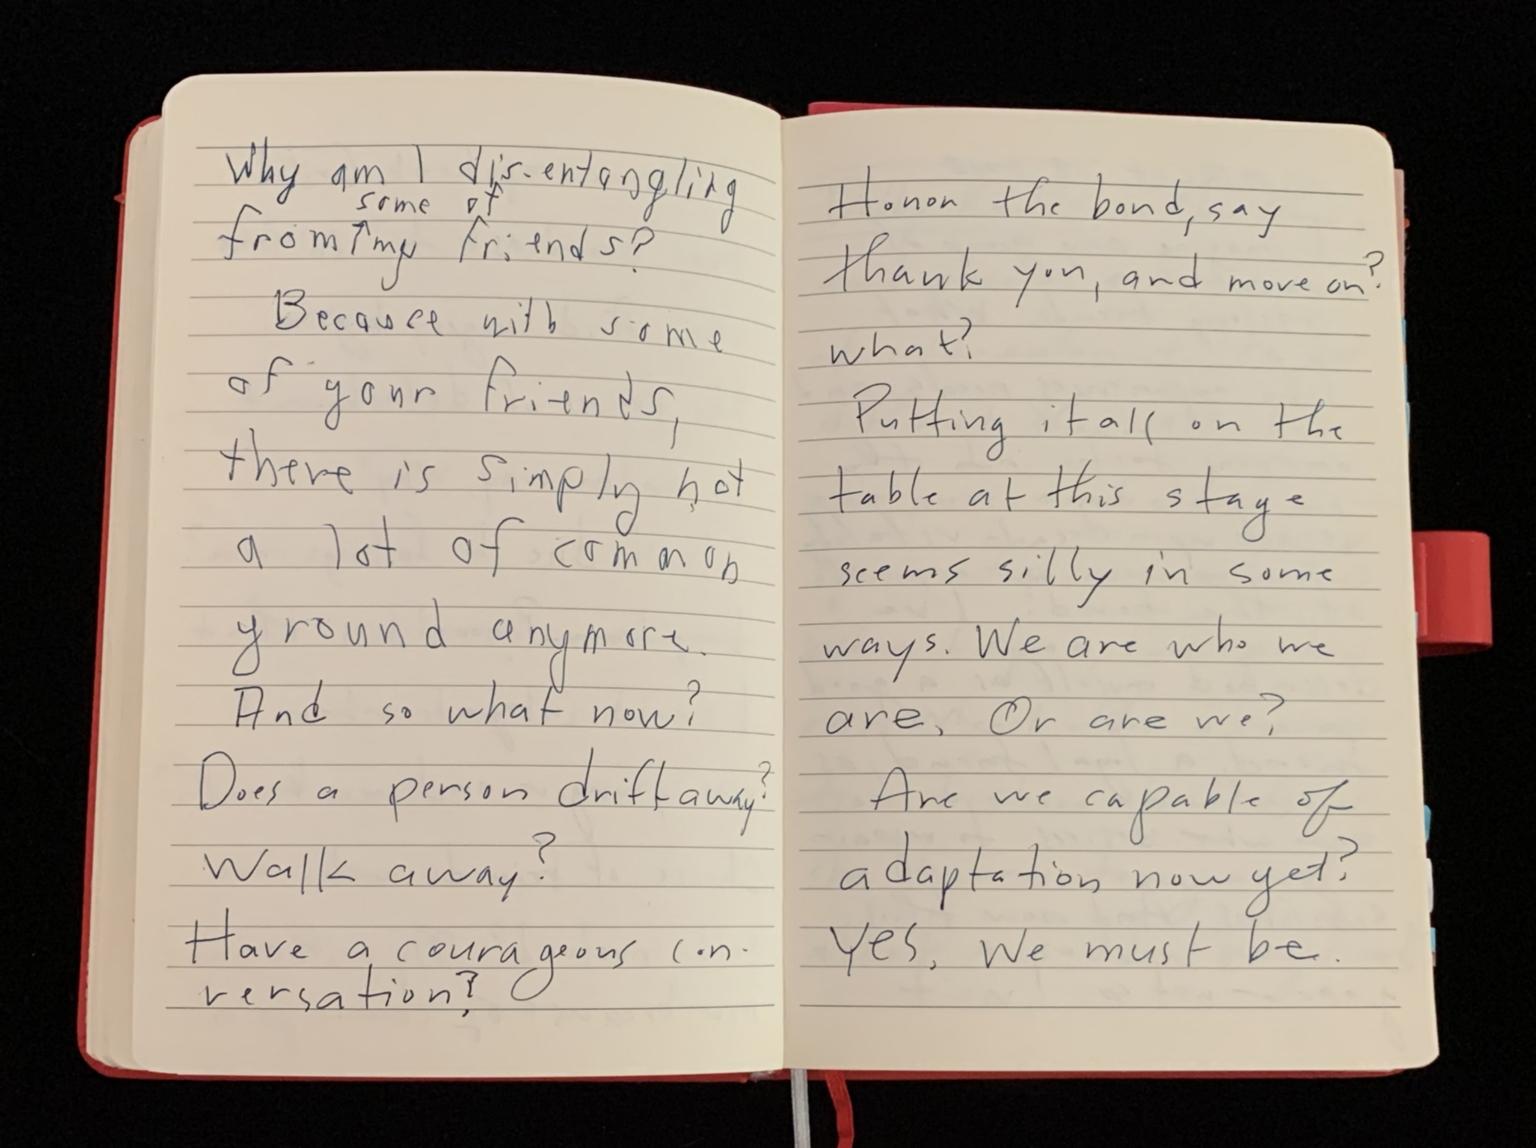 Why am I dis-entangling
some of
from↑my friends?
Because with some
of your friends,
there is simply not
a lot of common
ground anymore.
And so what now?
Does a person drift away?
Walk away?
Have a courageous con-
versation?
Honor the bond, say
thank you, and move on?
what?
Putting it all on the
table at this stage
seems silly in some
ways. We are who we
are. Or are we?
Are we capable of
adaptation now yet?
Yes. We must be.